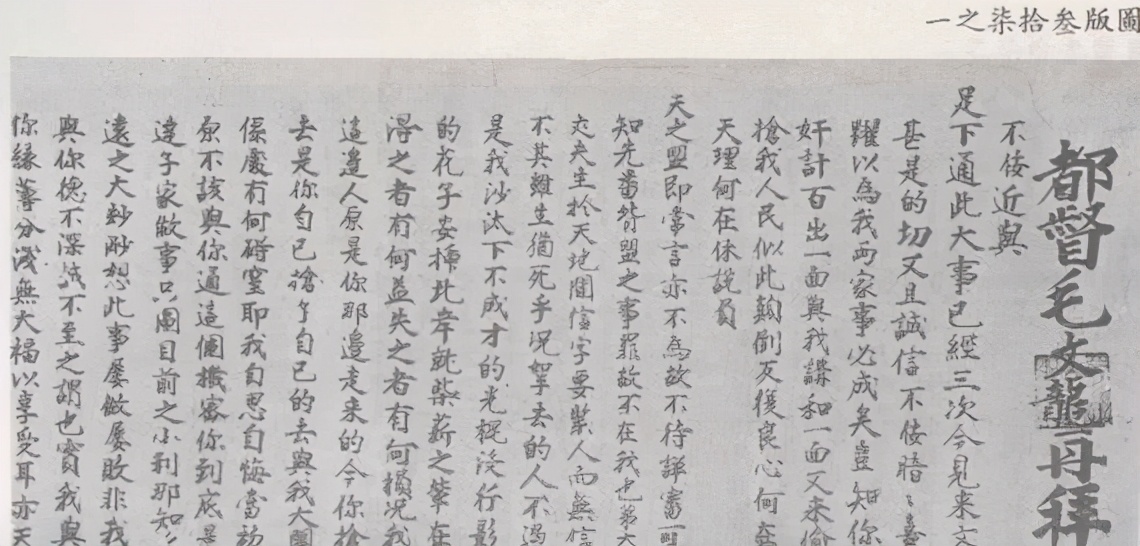 圖版叁拾柒之一
都督毛文龍再拜
不佞近與
足下通此大事已經三次今見来文
甚是的切又且誠信不佞暗〻喜
躍以為我兩家事必成矣豈知你
奸計百出一面與我講和一面又来偷
搶我人民似此顛倒反復良心何在
天理何在休說負
天之盟即常言亦不為故不待詳審
知先番背盟之事罪故不在我也第大
丈夫生扵天地間信字要緊人而無信
不其雖生猶死乎况拏去的人不過
是我沙汰下不成才的光棍没行影
的花子安揷此岸就柴薪之輩在
得之者有何益失之者有何損况我
這邉人原是你那邉走来的今你搶
去是你自己搶了自己的去與我大關
係處有何碍室耶我自思自悔當初
原不該與你通這個機密你到底是
達子家做事只圖目前之小利那知
遠之大妙耐想此事屡做屡敗非我
與你德不深誠不至之謂也實我與
你緣薄分淺無大福以享受耳亦天